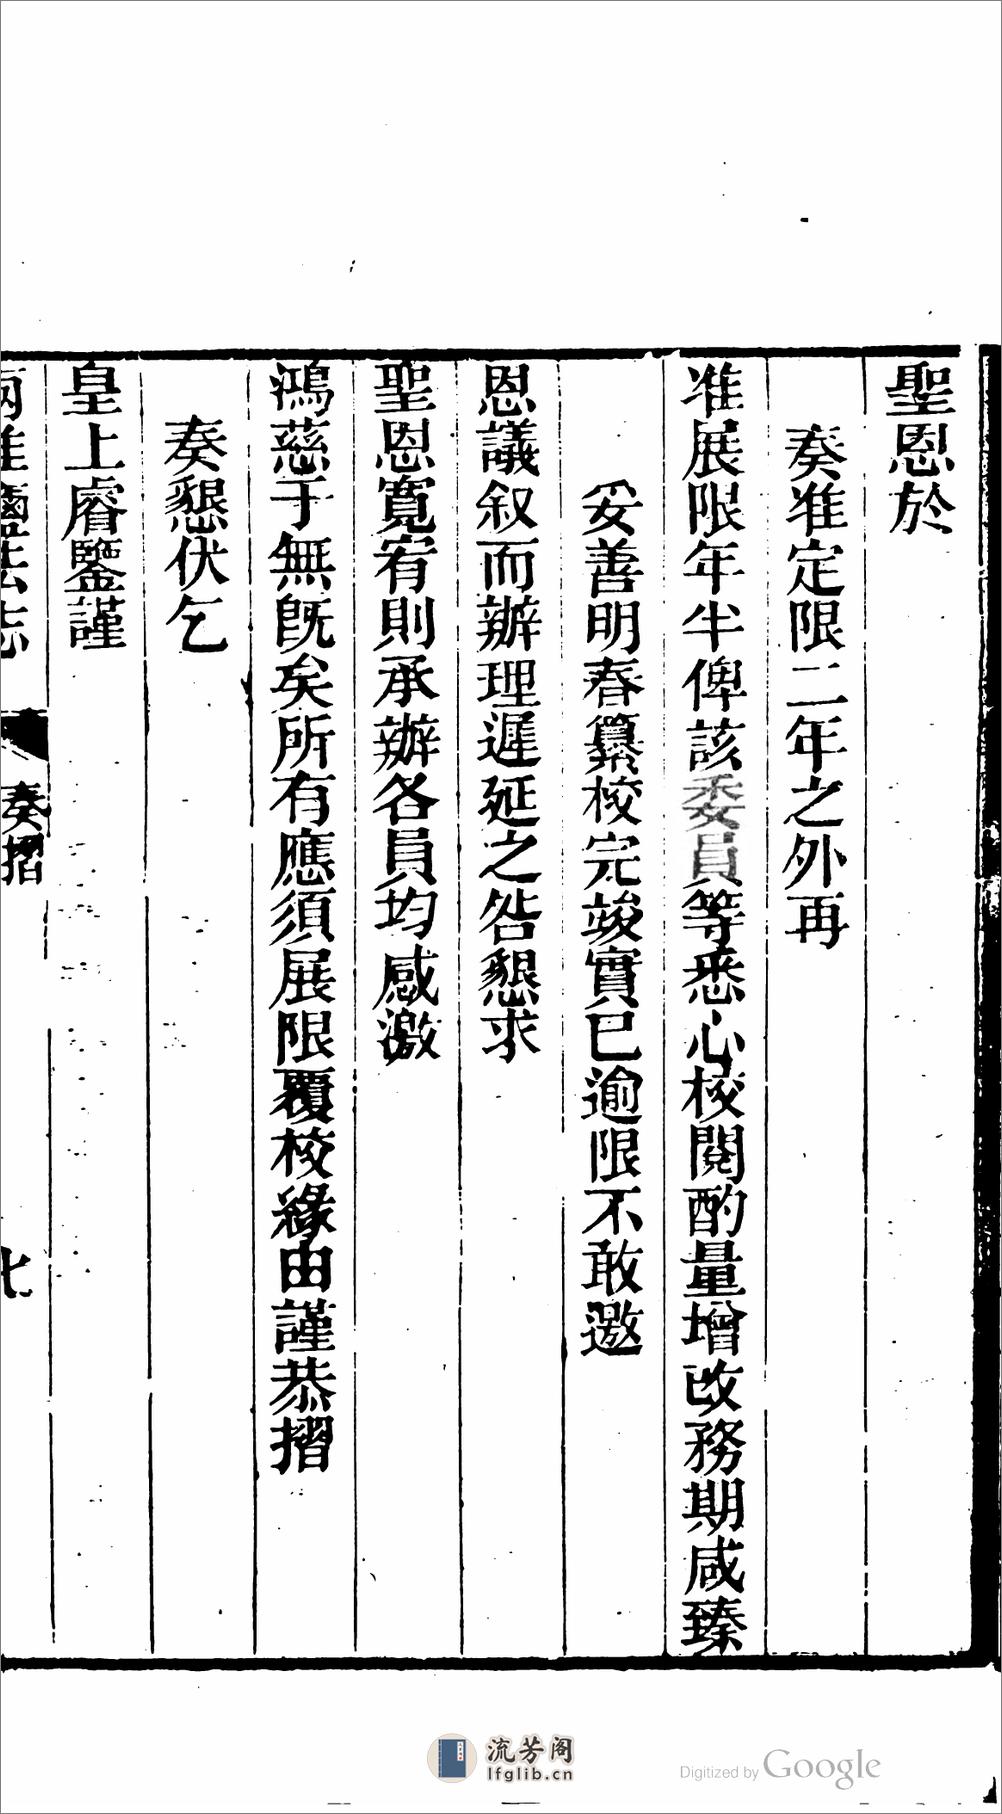 聖恩於
奏准定限二年之外再
准展限年半俾該委員等悉心校閱酌量增改務期咸臻
妥善明春纂校完竣實已逾限不敢邀
恩議叙而辦理遲延之咎懇求
聖恩寬宥則承辦各員均感激
鴻慈于無既矣所有應須展限覆校緣由謹恭摺
奏懇伏乞
皇上睿鑒謹
兩淮鹽法志
奏摺
七
流芳阁
lfglib.cn
Digitized by Google